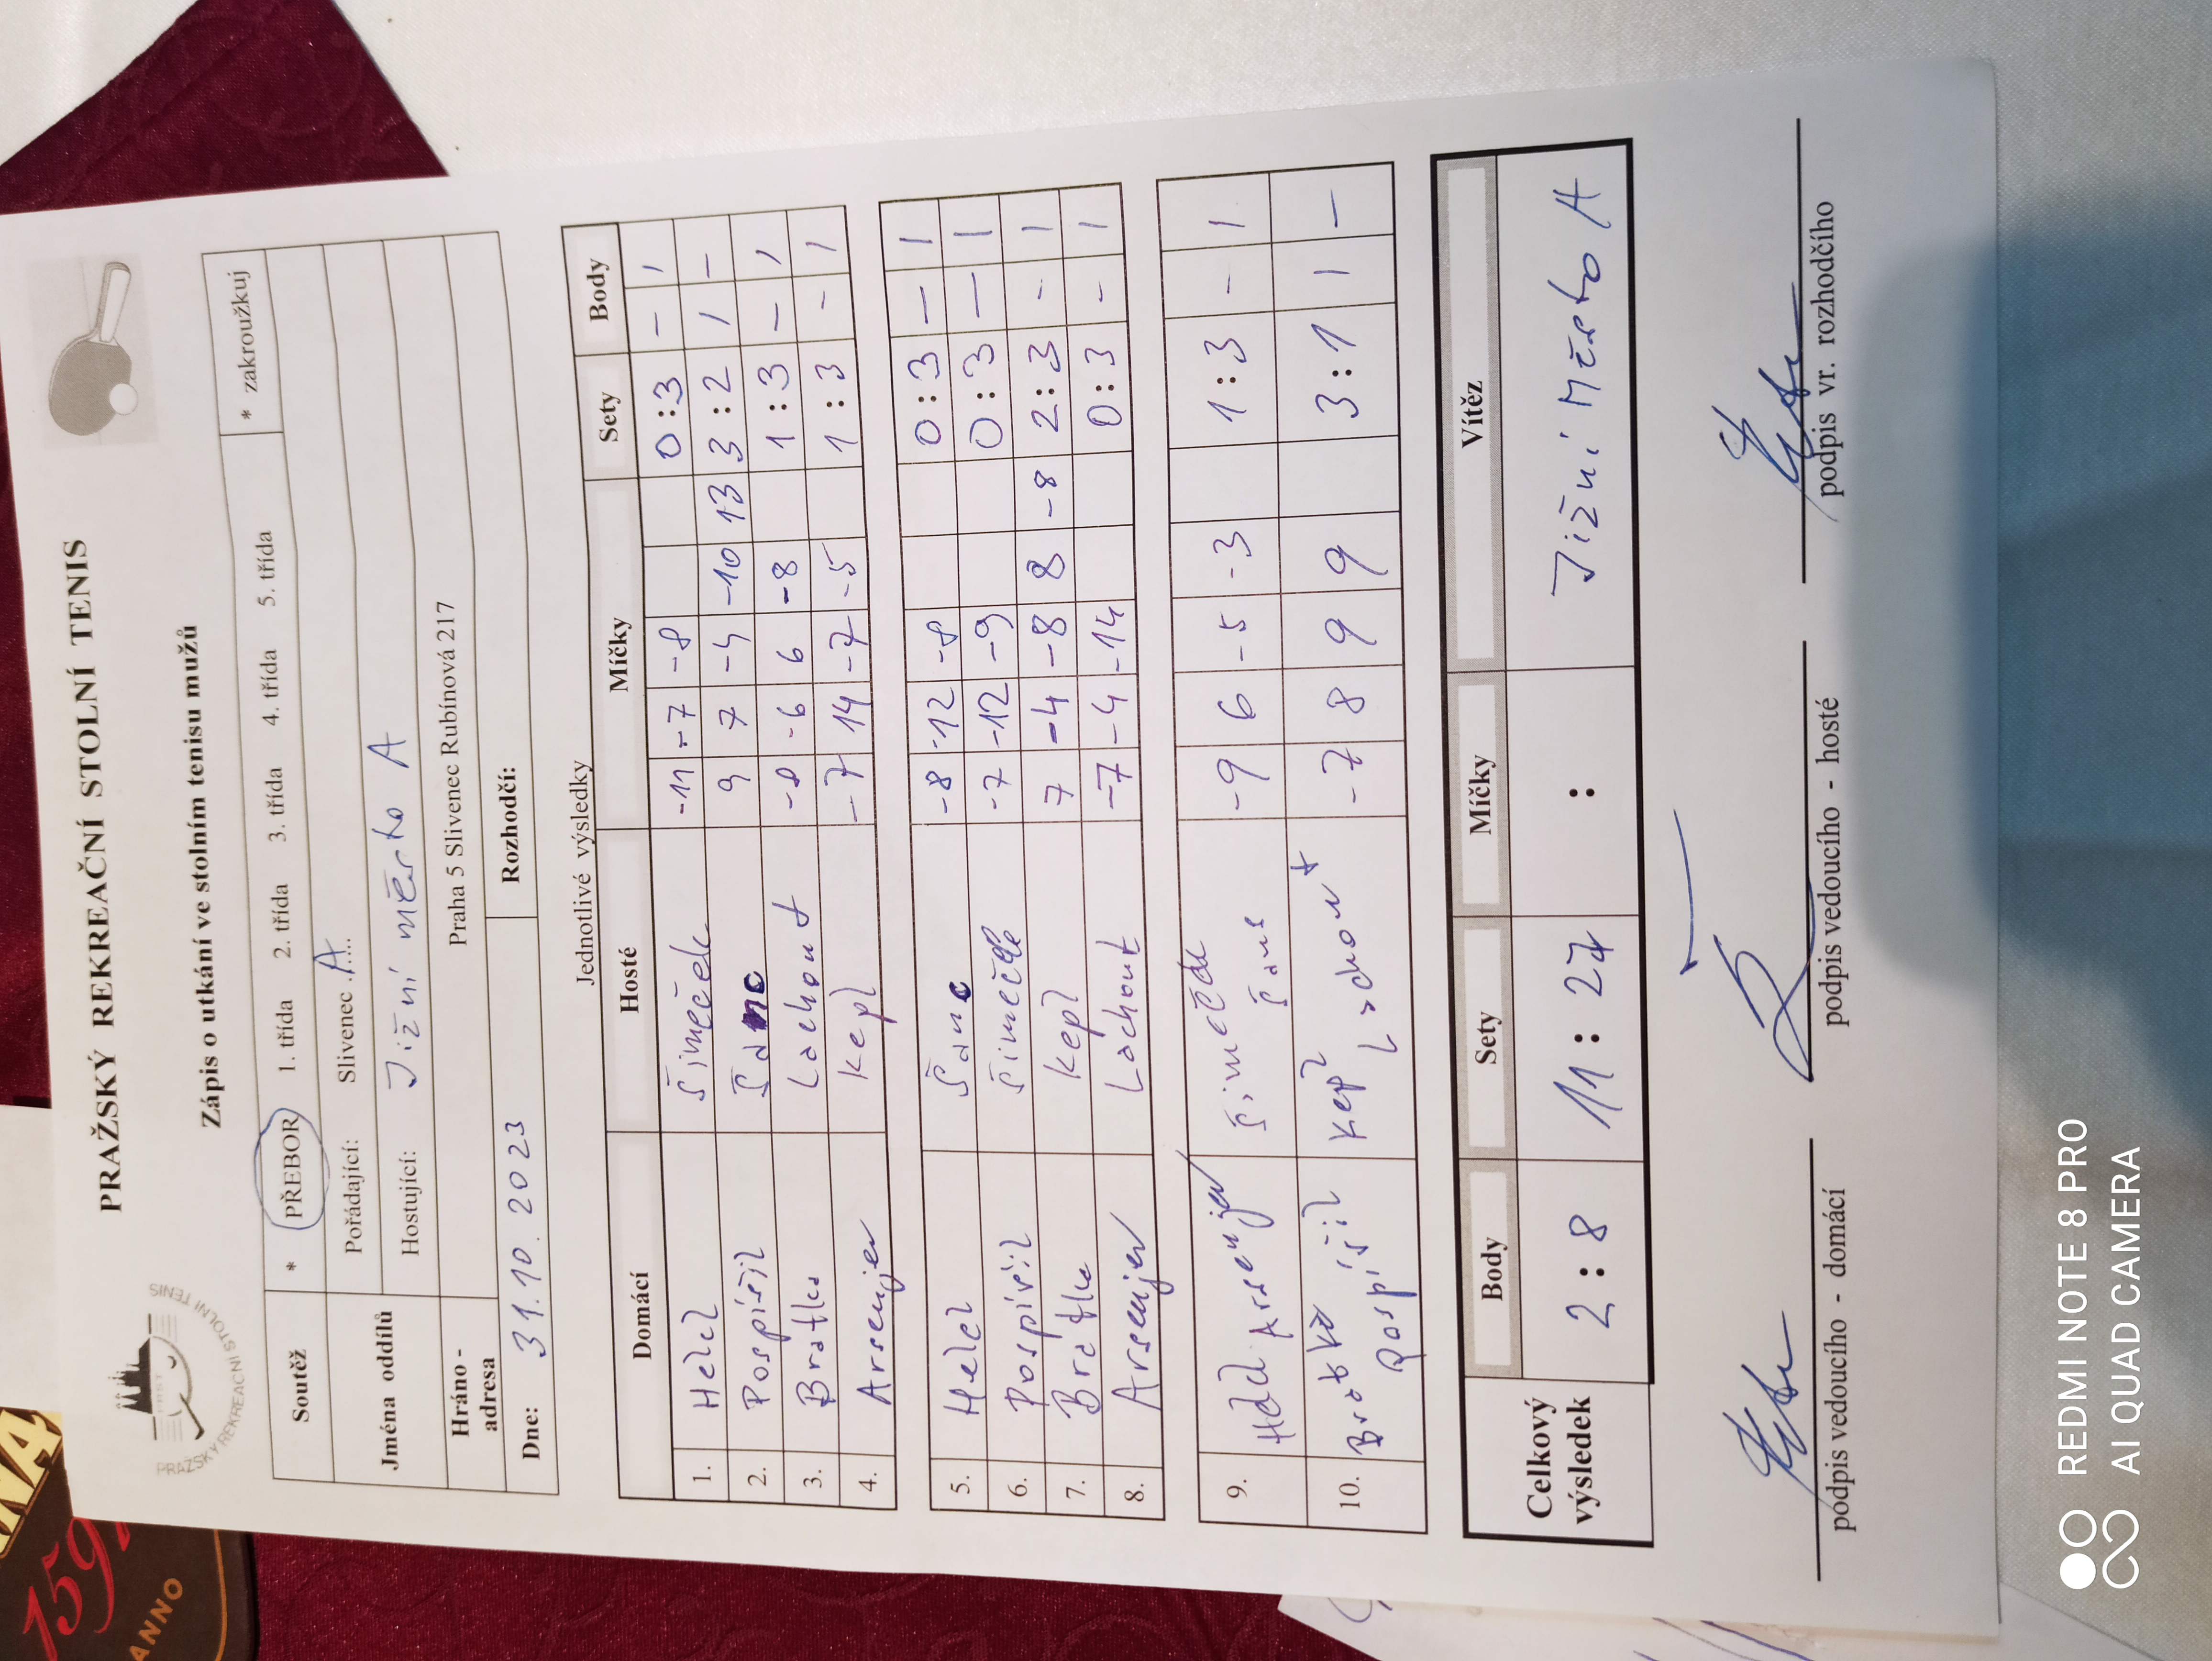 PRAŽSKÝ REKREAČNÍ STOLNÍ TENIS
PRAŽSKÝ REKREAČNÍ STOLNÍ TENIS
Zápis o utkání ve stolním tenisu mužů
Soutěž * PŘEBOR 1. třída 2. třída 3. třída 4. třída 5. třída * zakroužkuj
Jména oddílů Pořádající: Slivenec .A....
Hostující: Jižní město A
Hráno - adresa Praha 5 Slivenec Rubínová 217
Dne: 31.10.2023 Rozhodčí:
Jednotlivé výsledky
Domácí Hosté Míčky Sety Body
1. Helcl Šimeček -11 -7 -8 0:3 - 1
2. Pospíšil Šanc 9 7 -4 -10 13 3:2 1 -
3. Bratka Lachout -8 -6 6 -8 1:3 - 1
4. Arsenjev Kepl -7 14 -7 -5 1:3 - 1
5. Helcl Šanc -8 -12 -8 0:3 - 1
6. Pospíšil Šimeček -7 -12 -9 0:3 - 1
7. Bratka Kepl 7 -4 -8 8 -8 2:3 - 1
8. Arsenjev Lachout -7 -4 -14 0:3 - 1
9. Helcl Arsenjev Šimeček Šanc -9 6 -5 -3 1:3 - 1
10. Bratka Pospíšil Kepl Lachout -7 8 9 9 3:1 1 -
Celkový výsledek Body Sety Míčky Vítěz
2:8 11:27 : Jižní Město A
podpis vedoucího - domácí podpis vedoucího - hosté podpis vr. rozhodčího
159
ANNO
REDMI NOTE 8 PRO
AI QUAD CAMERA